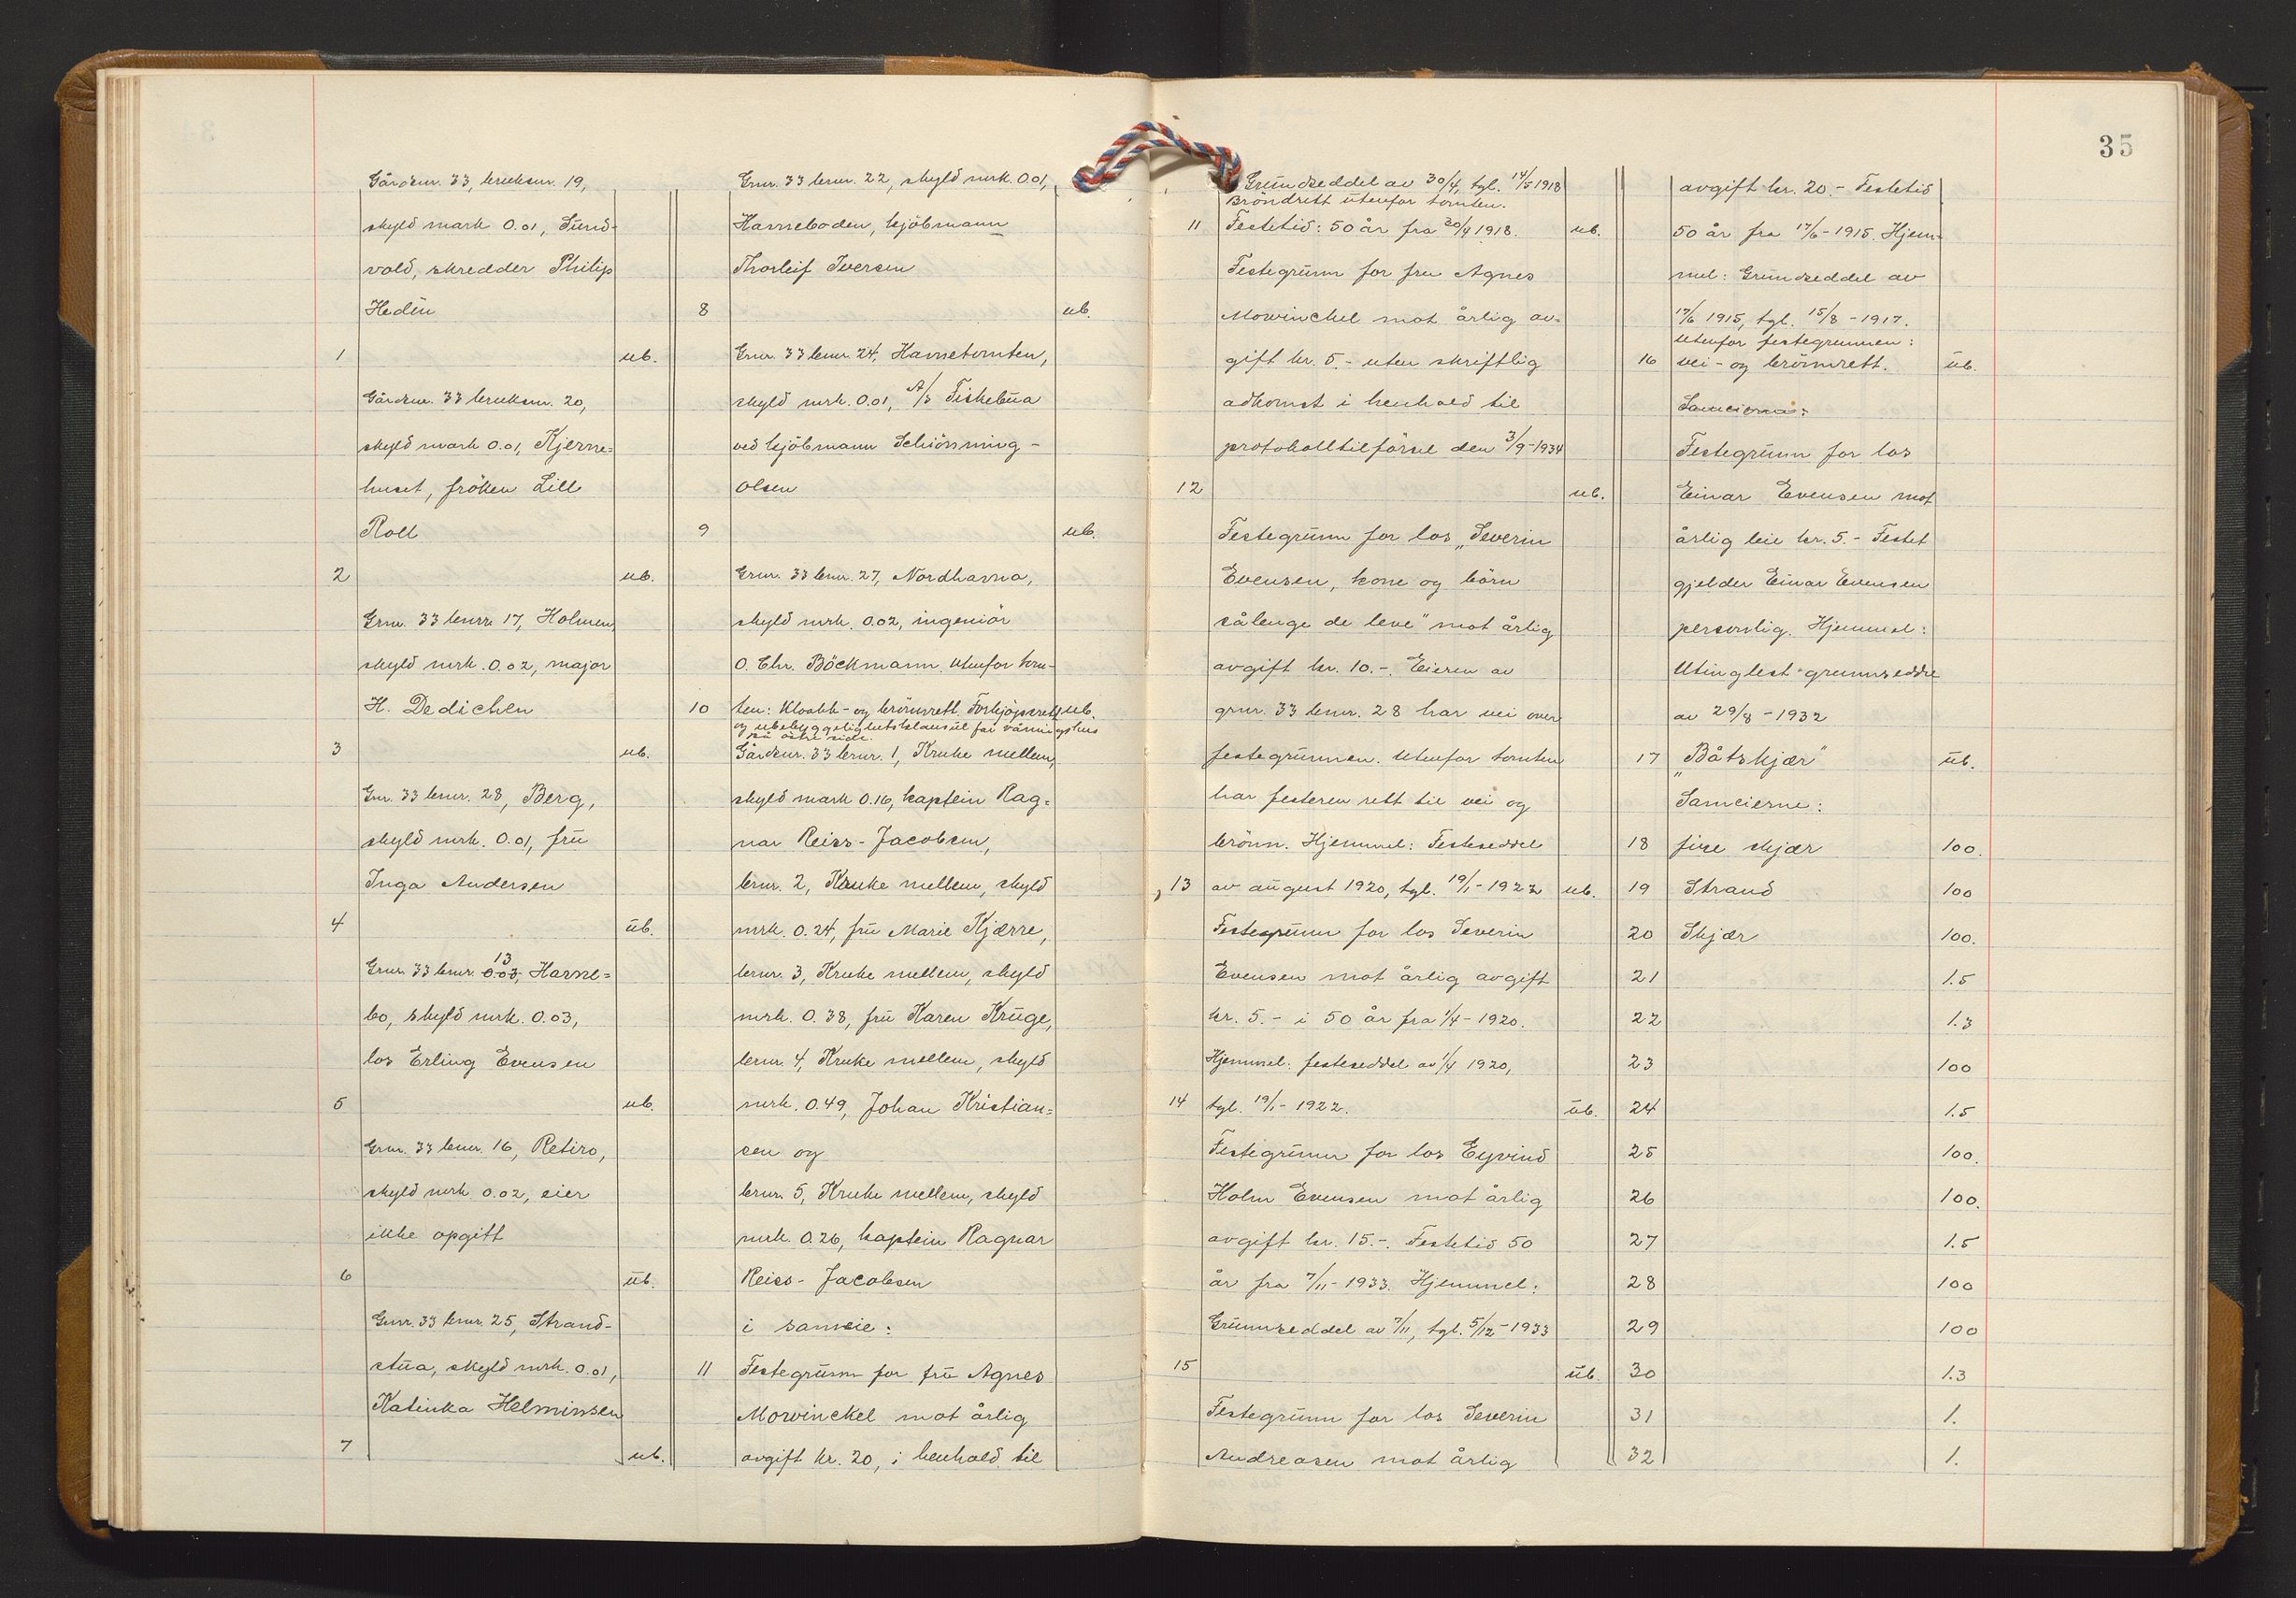 Gårdsnr. 33, bruksnr. 19,
skyld mark 0.01, Sund-
vold, skredder Philip
Hedèn
1 ub.
Gårdsnr. 33 bruksnr. 20,
skyld mark 0.01, Kjerne=
huset, fröken Lill
Roll
2 ub.
Gnr. 33 bnr. 17, Holmen,
skyld mrk. 0.02, major
H. Dedichen
3 ub.
Gnr. 33 bnr. 28, Berg,
skyld mrk. 0.01, frü
Inga Andersen
4 üb.
13
Gnr. 33 bnr. 0.03, Havne=
bo, skyld mrk. 0.03,
los Erling Evensen
5 ub.
Gnr. 33 bnr. 16, Retiro,
skyld mrk. 0.02, eier
ikke opgitt
6 üb.
Gnr. 33 bnr. 25, Strand-
stüa, skyld mrk. 0.01,
Katinka Helminsen
7 ub.
Gnr. 33 bnr. 22, skyld mrk. 0.01,
Havneboden, kjöbmann
Thorleif Iversen
8 ub.
Gnr. 33 bnr. 24, Havnetomten,
skyld mrk. 0.01, A/S Fiskebüa
ved kjöbmann Schiönning-
Olsen
9 ub.
Gnr. 33 bnr. 27, Nordhavna,
skyld mrk. 0.02, ingeniör
O. Chr. Böckmann. Utenfor tom-
10 ten: Kloakk- og brönnrett. Forkjöpsrett ub.
og ubebyggelighetsklausül for våningshus
på östre side.
Gårdsnr. 33 brnr. 1, Kruke mellem,
skyld mark 0.16, kaptein Rag=
nar Reiss-Jacobsen,
brnr. 2, Kruke mellem, skyld
mrk. 0.24, frü Marie Kjærre,
brnr. 3, Kruke mellem, skyld
mrk. 0.38, frü Karen Krüge,
brnr. 4, Kruke mellem, skyld
mrk. 0.49, Johan Kristian=
sen og
brnr. 5, Kruke mellem, skyld
mrk. 0.26, kaptein Ragnar
Reiss-Jacobsen
i sameie:
11 Festegrünn for frü Agnes
Mowinckel mot årlig
avgift kr. 20, i henhold til
35
Grundseddel av 30/4, tgl. 14/5 1918
Bröndrett utenfor tomten.
11 Festetid: 50 år fra 30/4 1918. ub.
Festegrünn for fru Agnes
Mowinckel mot årlig av=
gift kr. 5.- uten skriftlig
adkomst i henhold til
protokolltilförsel den 3/9-1934
12 ub.
Festegrünn for los „Severin
Evensen, kone og börn
sålenge de leve" mot årlig
avgift kr. 10.-. Eieren av
gnr. 33 bnr. 28 har vei over
festegrünnen. Utenfor tomten
har festeren rett til vei og
brönn. Hjemmel: Festeseddel
13 av aügust 1920, tgl. 19/1-1922 ub.
Festegrünn for los Severin
Evensen mot årlig avgift
kr. 5.- i 50 år fra 1/4-1920.
Hjemmel: festeseddel av 1/4 1920,
14 tgl. 19/1-1922. üb.
Festegrünn for los Eyvind
Holm Evensen mot årlig
avgift kr. 15.-. Festetid 50
år fra 7/11-1933. Hjemmel:
Grünnseddel av 7/11, tgl. 5/12-1933
15 üb.
Festegrünn for los Severin
Andreasen mot årlig
avgift kr. 20.- Festetid
50 år fra 17/6-1915. Hjem=
mel: Grundseddel av
17/6 1915, tgl. 15/8-1917.
Utenfor festegrunnen:
16 vei- og brönnrett. üb.
Sameierne:
Festegrünn for los
Einar Evensen mot
årlig leie kr. 5.- Festet
gjelder Einar Evensen
personlig. Hjemmel:
Utinglest grunnseddel
av 29/8-1932
17 „Båtskjær" üb.
Sameierne:
18 fire skjær 100.
19 Strand 100
20 Skjær 100.
21 1.5
22 1.3
23 100
24 1.5
25 100.
26 100.
27 1.5
28 100
29 100
30 1.3
31 1.
32 1.